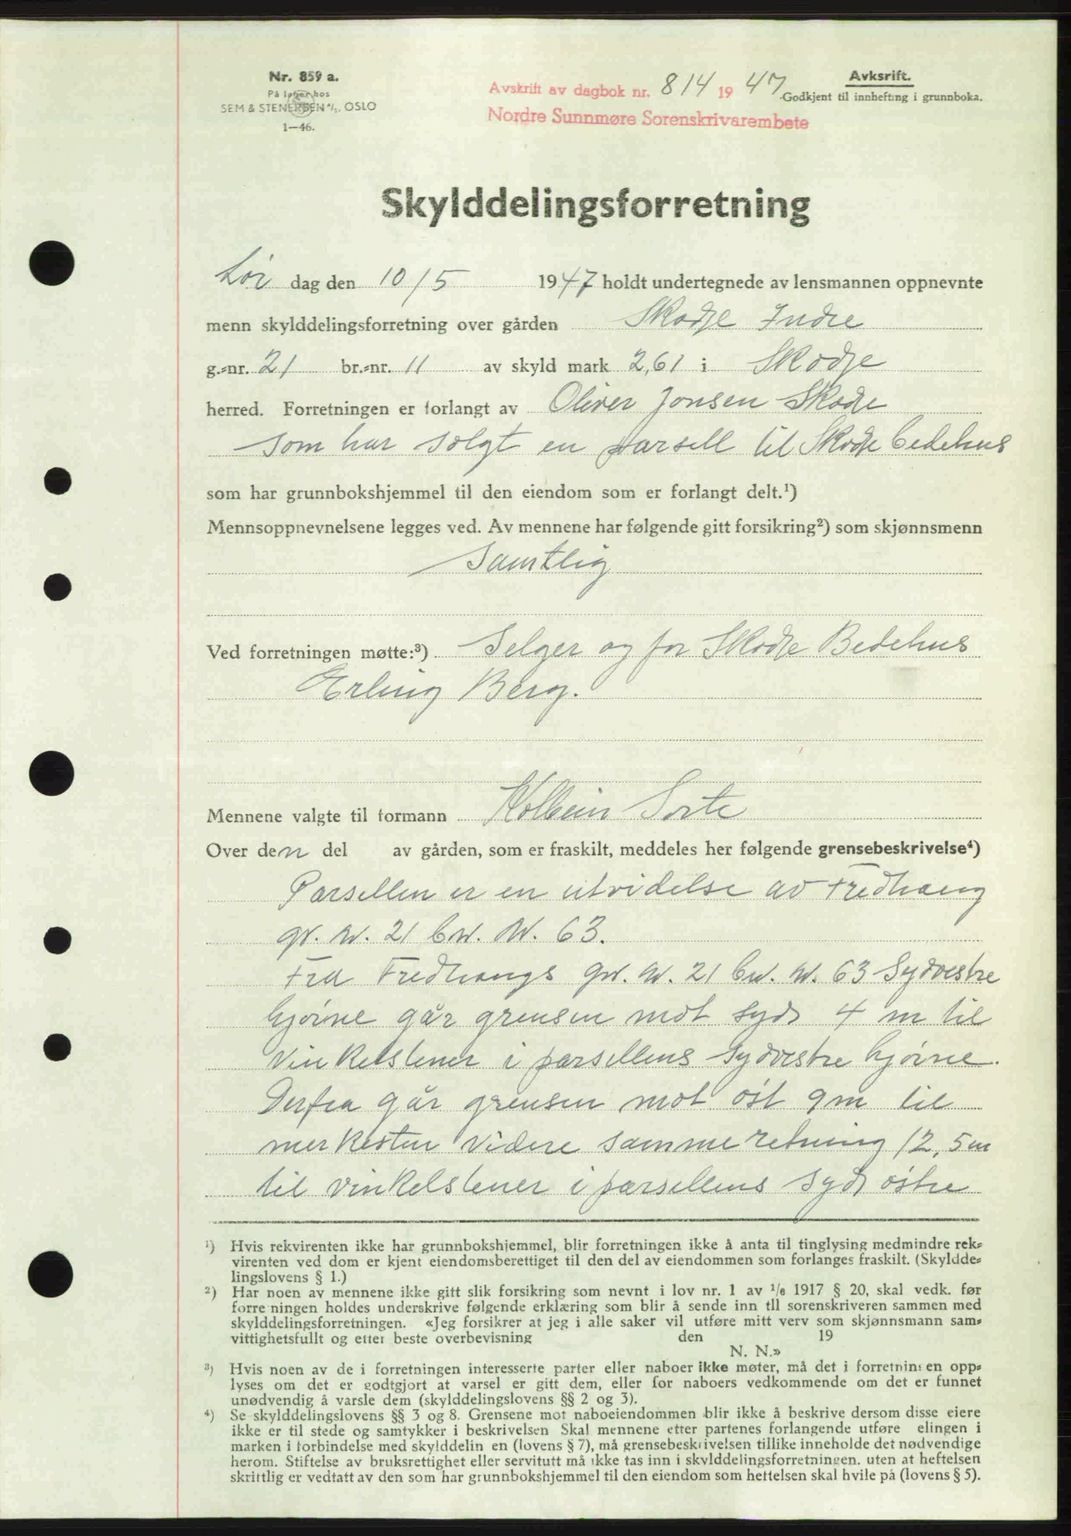 Nr. 859 a.
På lager hos
SEM & STENERSEN A/S, OSLO
1—46.
Avskrift av dagbok nr. 814 1947
Nordre Sunnmøre Sorenskrivarembete
Avksrift.
Godkjent til innhefting i grunnboka.
Skylddelingsforretning
Lør dag den 10/5 1947 holdt undertegnede av lensmannen oppnevnte
menn skylddelingsforretning over gården Skodje Indre
g.-nr. 21 br.-nr. 11 av skyld mark 2,61 i Skodje
herred. Forretningen er forlangt av Oliver Jonsen Skodje
som har solgt en parsell til Skodje bedehus
som har grunnbokshjemmel til den eiendom som er forlangt delt.¹)
Mennsoppnevnelsene legges ved. Av mennene har følgende gitt forsikring²) som skjønnsmenn
Samtlig
Ved forretningen møtte:³) Selger og for Skodje Bedehus
Erling Berg.
Mennene valgte til formann Kolbein Sorte
Over den del av gården, som er fraskilt, meddeles her følgende grensebeskrivelse⁴)
Parsellen er en utvidelse av Fredhaug
gr. nr. 21 br. nr. 63.
Fra Fredhaugs gr. nr. 21 br. nr. 63 Sydvestre
hjørne går grensen mot syd 4 m til
vinkelstener i parsellens sydvestre hjørne.
Derfra går grensen mot øst 9m til
merkesten videre samme retning 12,5m
til vinkelstener i parsellens syd østre
¹) Hvis rekvirenten ikke har grunnbokshjemmel, blir forretningen ikke å anta til tinglysing medmindre rek-
virenten ved dom er kjent eiendomsberettiget til den del av eiendommen som forlanges fraskilt. (Skyldde-
lingslovens § 1.)
²) Har noen av mennene ikke gitt slik forsikring som nevnt i lov nr. 1 av 1/6 1917 § 20, skal vedk. før
forre ningen holdes underskrive følgende erklæring som blir å sende inn til sorenskriveren sammen med
skylddelingsforretningen. «Jeg forsikrer at jeg i alle saker vil utføre mitt verv som skjønnsmann sam-
vittighetsfullt og etter beste overbevisning den 19
N. N.»
³) Hvis noen av de i forretningen interesserte parter eller naboer ikke møter, må det i forretnin en opp-
lyses om det er godtgjort at varsel er gitt dem, eller for naboers vedkommende om det er funnet
unødvendig å varsle dem (skylddelingslovens §§ 2 og 3).
⁴) Se skylddelingslovens §§ 3 og 8. Grensene mot naboeiendommen blir ikke å beskrive dersom disse eiere
ikke er til stede og samtykker i beskrivelsen Skal mennene etter partenes forlangende utføre elingen i
marken i forbindelse med skylddelin en (lovens § 7), må grensebeskrivelsen tillike inneholde det nødvendige
herom. Stiftelse av bruksrettighet eller servitutt må ikke tas inn i skylddelingsforretningen. uten at heftelsen
skriftlig er vedtatt av den som har grunnbokshjemmel til den eiendom som heftelsen skal hvile på (lovens § 5).